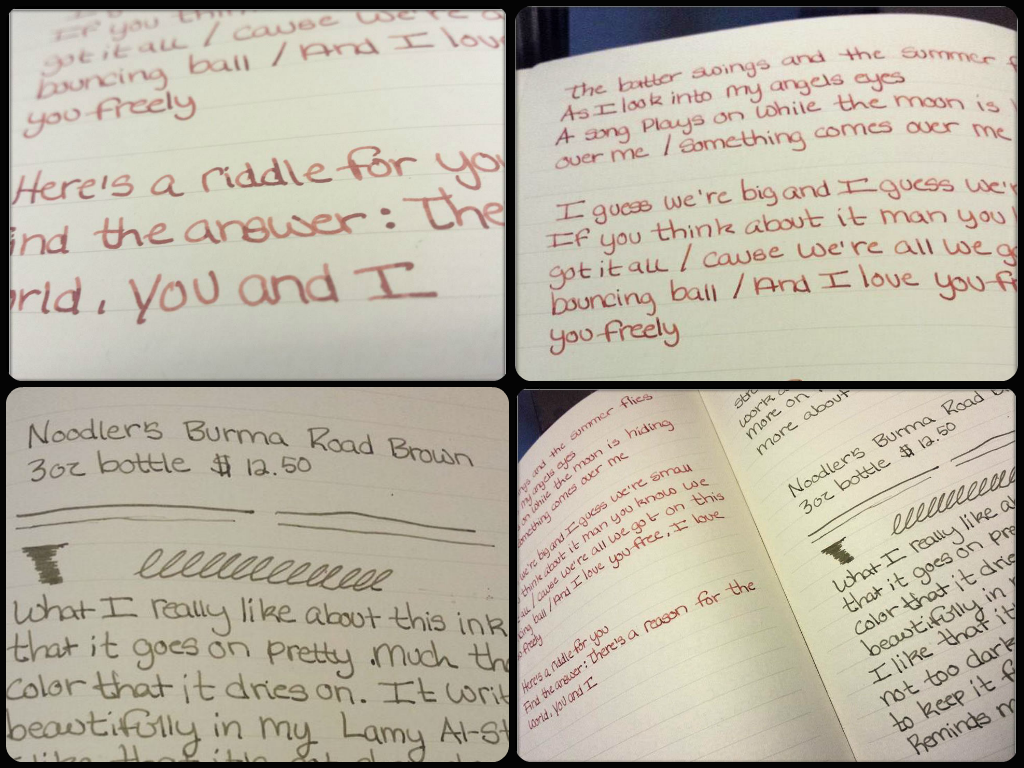 If you think
got it all / cause we're a
bouncing ball / And I love
you freely
Here's a riddle for you
ind the answer: The
rld, you and I
the batter swings and the summer f
As I look into my angels eyes
A song Plays on while the moon is
over me / Something comes over me
I guess we're big and I guess we'r
If you think about it man you
got it all / cause we're all we go
bouncing ball / And I love you fr
you freely
Noodler's Burma Road Brown
3oz bottle $12.50
What I really like about this ink
that it goes on pretty much th
color that it dries on. It writ
beautifully in my Lamy Al-St
ngs and the summer flies
my angels eyes
on while the moon is hiding
omething comes over me
we're big and I guess we're small
think about it man you know we
all / cause we're all we got on this
cing ball / And I love you free, I love
freely
Here's a riddle for you
Find the answer: There's a reason for the
world, you and I
work a
more on
more about
Noodler's Burma Road
3oz bottle $12.50
What I really like a
that it goes on pre
color that it drie
beautifully in
I like that it
not too dark
to keep it f
Reminds m